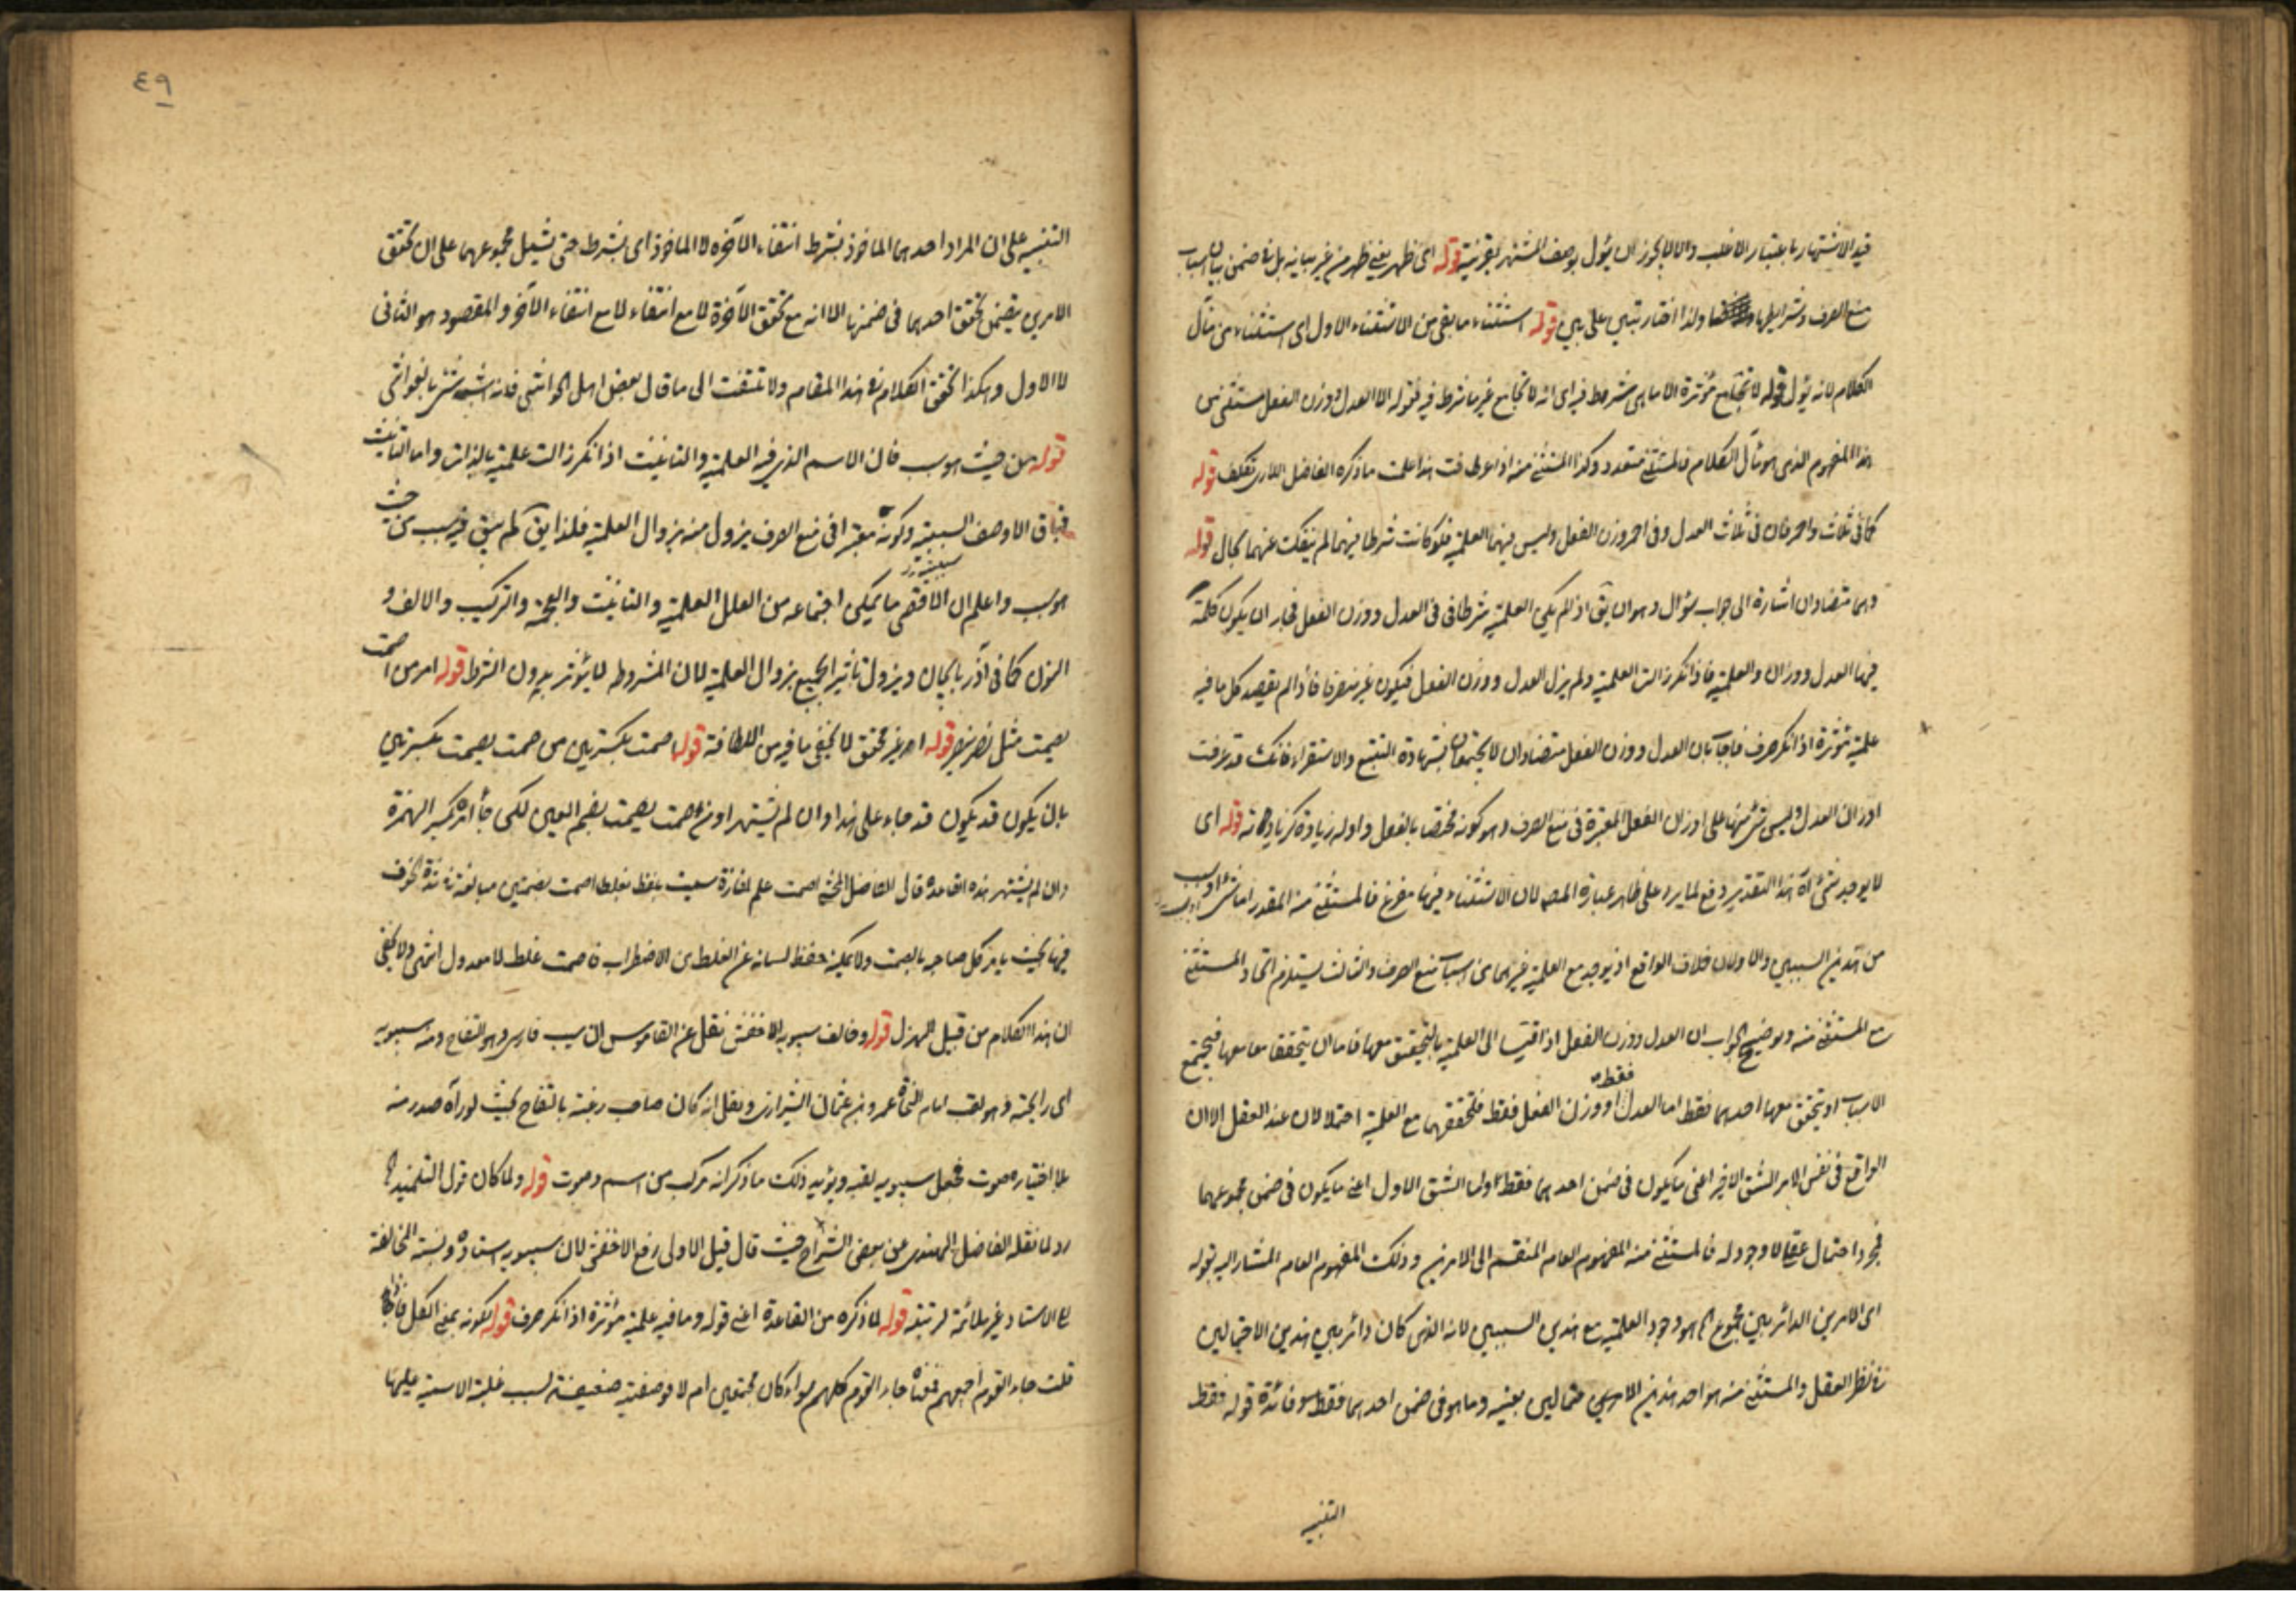 قيد الاشتهار باعتبار الاغلب والا لا يجوز ان يؤل بوصف المشتهر بقرينة قوله اى ظهر يعنى ظهر من غير بيانه بل فى ضمن بيان اسباب
منع الصرف وشرائطها ولذا اختار تبين على بين قوله استثناء ما بقى من الاستثناء الاول اى استثناء من مآل
الكلام لانه يؤل قوله لا تجامع مؤثرة الا ما هى شرط فيه اى انه لا تجامع غير ما شرط فيه فقوله الا العدل ووزن الفعل مستثنى من
هذا المفهوم الذى هو مآل الكلام فالمستثنى متعدد وكذا المستثنى منه اذا عرفت هذا علمت ما ذكره الفاضل اللارى تكلف قوله
كما فى ثلاث واحمر فان فى ثلاث العدل وفى احمر وزن الفعل وليس فيهما العلمية فلو كانت شرطا فيهما لم ينفك عنهما بحال قوله
وهما متضادان اشارة الى جواب سؤال وهو ان يق اذ لم يكن العلمية شرطا فى العدل ووزن الفعل فجاز ان يكون كلمة
فيها العدل ووزان والعلمية فاذا نكر زالت العلمية ولم يزل العدل ووزن الفعل فيكون غير منصرف فاذا لم يصدق كل ما فيه
علمية مؤثرة اذا نكر صرف فاجاب بان العدل ووزن الفعل متضادان لا يجتمعان بشهادة التتبع والاستقراء فانك قد عرفت
اوزان العدل وليس شئ منها على اوزان الفعل المعتبرة فى منع الصرف وهو كونه مختصا بالفعل واوله زيادة كزيادته قوله اى
لا يوجد شئ آه هذا التقدير دفع لما يرد على ظاهر عبارة المص لان الاستثناء فيها مفرغ فالمستثنى منه المقدر اما شئ او سبب
من هذين السببين والاولان خلاف الواقع اذ يوجد مع العلمية غيرهما من اسباب منع الصرف والثالث يستلزم اتحاد المستثنى
مع المستثنى منه وتوضيح الجواب ان العدل ووزن الفعل اذا قيسا الى العلمية بالتحقق معها فاما ان يتحققا معا معها فيجتمع
الاسباب او يتحقق معها احدهما فقط اما العدل فقط او وزن الفعل فقط فلتحققهما مع العلمية احتمالان عند العقل الا ان
الواقع فى نفس الامر الشق الاخير اعنى ما يكون فى ضمن احدهما فقط واما الشق الاول اعنى ما يكون فى ضمن مجموعهما
فمجرد احتمال عقلى لا وجود له فالمستثنى منه المفهوم العام المنقسم الى الامرين وذلك المفهوم العام المشار اليه بقوله
اى الامرين الدائر بين مجموع هو وجود العلمية مع هذين السببين لانه الذى كان دائرا بين هذين الاحتمالين
فى نظر العقل والمستثنى منه هو احد هذين الامرين بعينه وما هو فى ضمن احدهما فقط وفائدة قوله فقط
التنبيه
٤٩
التنبيه على ان المراد احدهما الماخوذ بشرط انتفاء الآخر لا الماخوذ اى بشرط حتى يشمل مجموعهما على ان تحقق
الامرين يتضمن تحقق احدهما فى ضمنها الا انه مع تحقق الآخر لا مع انتفاء لا مع انتفاء الآخر والمقصود هو الثانى
لا الاول وهكذا تحقق الكلام فى هذا المقام ولا تلتفت الى ما قال بعض اهل الحواشى فانه اشبه شئ بالغواشى
قوله من حيث هو سبب فان الاسم الذى فيه العلمية والتانيث اذا نكر زالت علمية بالذات واما التانيث
فباق الا وصف السببية وكونه معتبرا فى منع الصرف يزول منه بزوال العلمية فلذا يق لم يبق فيه سبب من حيث
هو سبب واعلم ان اقصى ما يمكن اجتماعه من العلل العلمية والتانيث والعجمة والتركيب والالف و
النون كما فى آذربايجان ويزول تاثير الجميع بزوال العلمية لان المشروط لا يؤثر بدون الشرط قوله امر من اصمت
يصمت مثل نصر ينصر قوله امر غير محقق لا يخفى ما فيه من اللطافة قوله اصمت بكسرتين من صمت يصمت بكسرتين
بان يكون قد يكون قد جاء على هذا وان لم يشتهر او من صمت يصمت بضم العين لكن جاء امره بكسر الهمزة
وان لم يشتهر هذه القاعدة قال الفاضل المحشى اصمت علم لمفازة سميت بلفظ اصمت بضمتين مبالغة فى شدة الخوف
فيها بحيث يامر كل صاحبه بالصمت ولا يمكنه حفظ لسانه عن الغلط من الاضطراب فاصمت غلط لا معدول انتهى ولا يخفى
ان هذا الكلام من قبيل الهزل قوله وخالف سيبويه الاخفش نقل عن القاموس ان سيب فارسى وهو التفاح ومنه سيبويه
اى رايحته وهو لقب امام النحاة عمرو بن عثمان الشيرازى ونقل انه كان صاحب رغبة بالتفاح بحيث لو رآه صدر منه
بلا اختياره صوت فجعل سيبويه لقبه ويؤيد ذلك ما ذكر انه مركب من اسم وصوت قوله ولما كان قول التلميذ آه
رد لما نقله الفاضل الهندى عن بعض الشراح حيث قال قيل الاولى رفع الاخفش لان سيبويه استاده ونسبة المخالفة
الى الاستاد غير ملائمة لرتبته قوله لما ذكره من القاعدة اعنى قوله وما فيه علمية مؤثرة اذا نكر صرف قوله لكونه بمعنى الكل فاذا
قلت جاء القوم اجمعهم فمعناه جاء القوم كلهم سواء كان مجتمعين ام لا فوصفيته ضعيفة لسبب غلبة الاسمية عليها